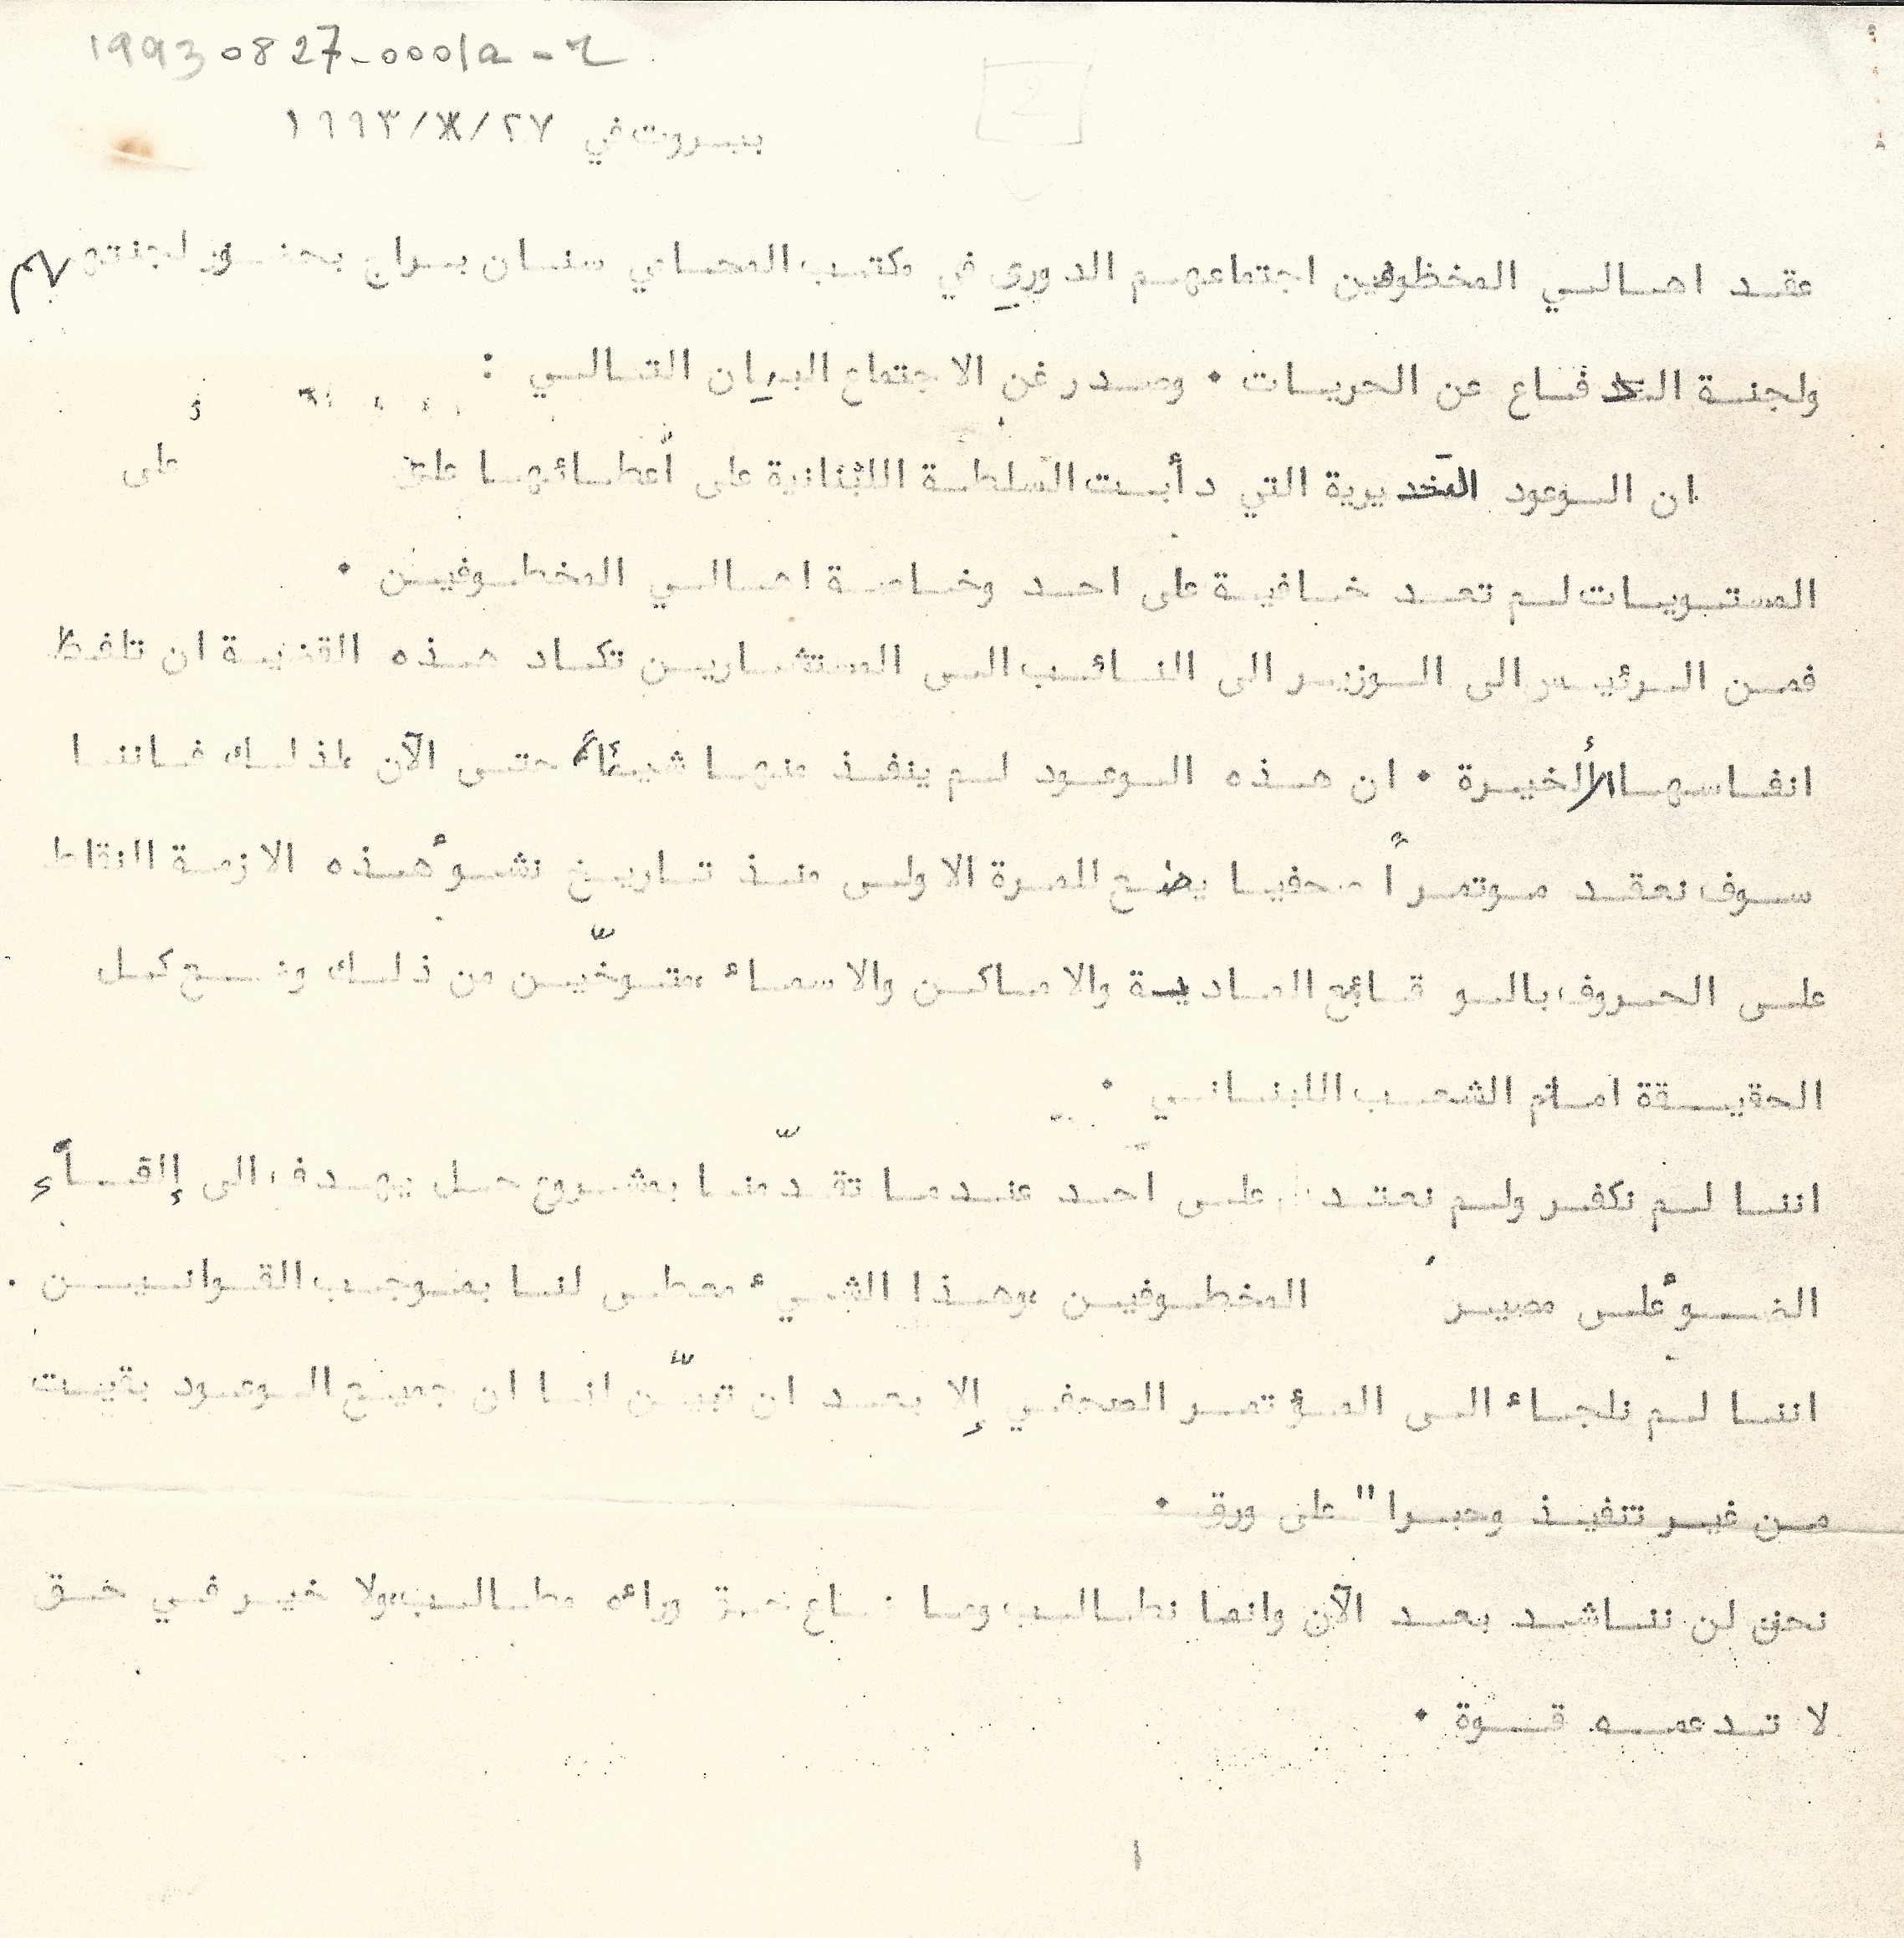 19930827-0001a-2
2
بيروت في ٢٧/٨/١٩٩٣
عقد اهالي المخطوفين اجتماعهم الدوري في مكتب المحامي سنان براج بحضور لجنتهم
ولجنة الدفاع عن الحريات ٠ وصدر عن الاجتماع البيان التالي :
ان الوعود التخديرية التي دأبت السلطة اللبنانية على أعطائها على
المستويات لم تعد خافية على احد وخاصة اهالي المخطوفين ٠
فمن الرئيس الى الوزير الى النائب الى المستشارين تكاد هذه القضية ان تلفظ
انفاسها الأخيرة ٠ ان هذه الوعود لم ينفذ منها شيئاً حتى الآن ،لذلك فاننا
سوف نعقد موتمراً صحفيا يضع للمرة الاولى منذ تاريخ نشوء هذه الازمة النقاط
على الحروف بالوقائع المادية والاماكن والاسماء ،متوخّين من ذلك وضع كل
الحقيقة امام الشعب اللبناني ٠
اننا لم نكفر ولم نعتد على احد عندما تقدّمنا بمشروع حل يهدف الى إلقاء
الضوء على مصير المخطوفين ،وهذا الشيء معطى لنا بموجب القوانين ٠
اننا لم نلجاء الى المؤتمر الصحفي إلا بعد ان تبيّن لنا ان جميع الوعود بقيت
من غير تنفيذ وحبرا" على ورق ٠
نحن لن نناشد بعد الآن وانما نطالب وما ضاع حق وراءه مطالب ،ولا خير في حق
لا تدعمه قوة ٠
١